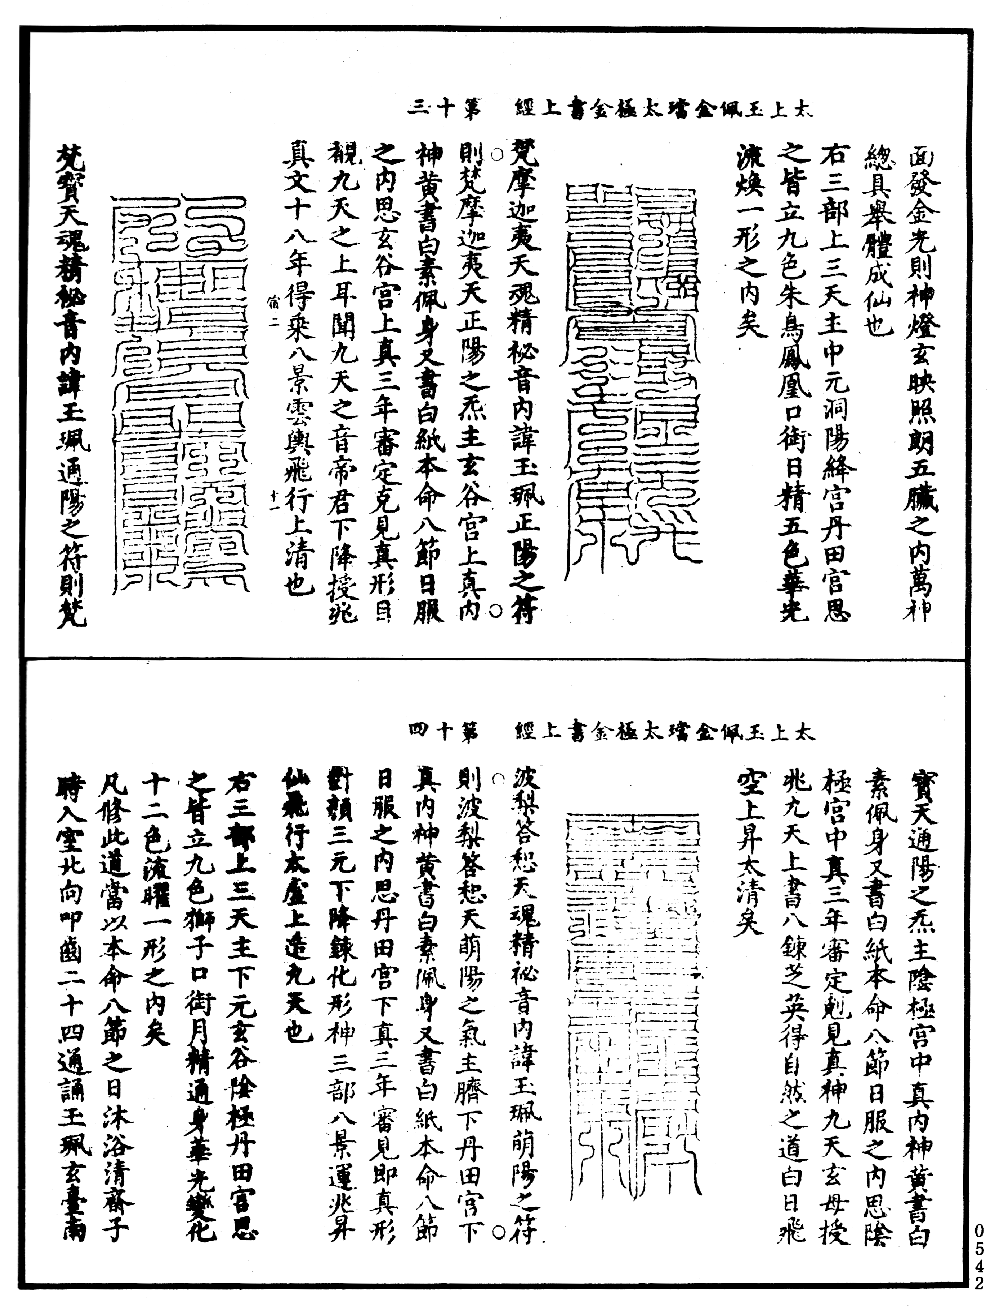 太上玉佩金璫太極金書上經　第十三
面發金光則神燈玄映照朗五臟之內萬神
總具舉體成仙也
右三部上三天主中元洞陽絳宮丹田宮思
之皆立九色朱鳥鳳凰口銜日精五色華光
流煥一形之內矣
梵摩迦夷天魂精祕音內諱玉珮正陽之符
則梵摩迦夷天正陽之炁主玄谷宮上真內
神黃書白素佩身又書白紙本命八節日服
之內思玄谷宮上真三年審定克見真形目
覩九天之上耳聞九天之音帝君下降授兆
真文十八年得乘八景雲輿飛行上清也
宿二
十一
梵寶天魂精祕音內諱玉珮通陽之符則梵
太上玉佩金璫太極金書上經　第十四
寶天通陽之炁主陰極宮中真內神黃書白
素佩身又書白紙本命八節日服之內思陰
極宮中真三年審定剋見真神九天玄母授
兆九天上書八鍊芝英得自然之道白日飛
空上昇太清矣
波梨答惒天魂精祕音內諱玉珮萌陽之符
則波梨答惒天萌陽之氣主臍下丹田宮下
真內神黃書白素佩身又書白紙本命八節
日服之內思丹田宮下真三年審見即真形
對顏三元下降鍊化形神三部八景運兆昇
仙飛行太虛上造九天也
右三部上三天主下元玄谷陰極丹田宮思
之皆立九色獅子口銜月精通身華光變化
十二色流曜一形之內矣
凡修此道當以本命八節之日沐浴清齋子
時入室北向叩齒二十四通誦玉珮玄臺南
0542